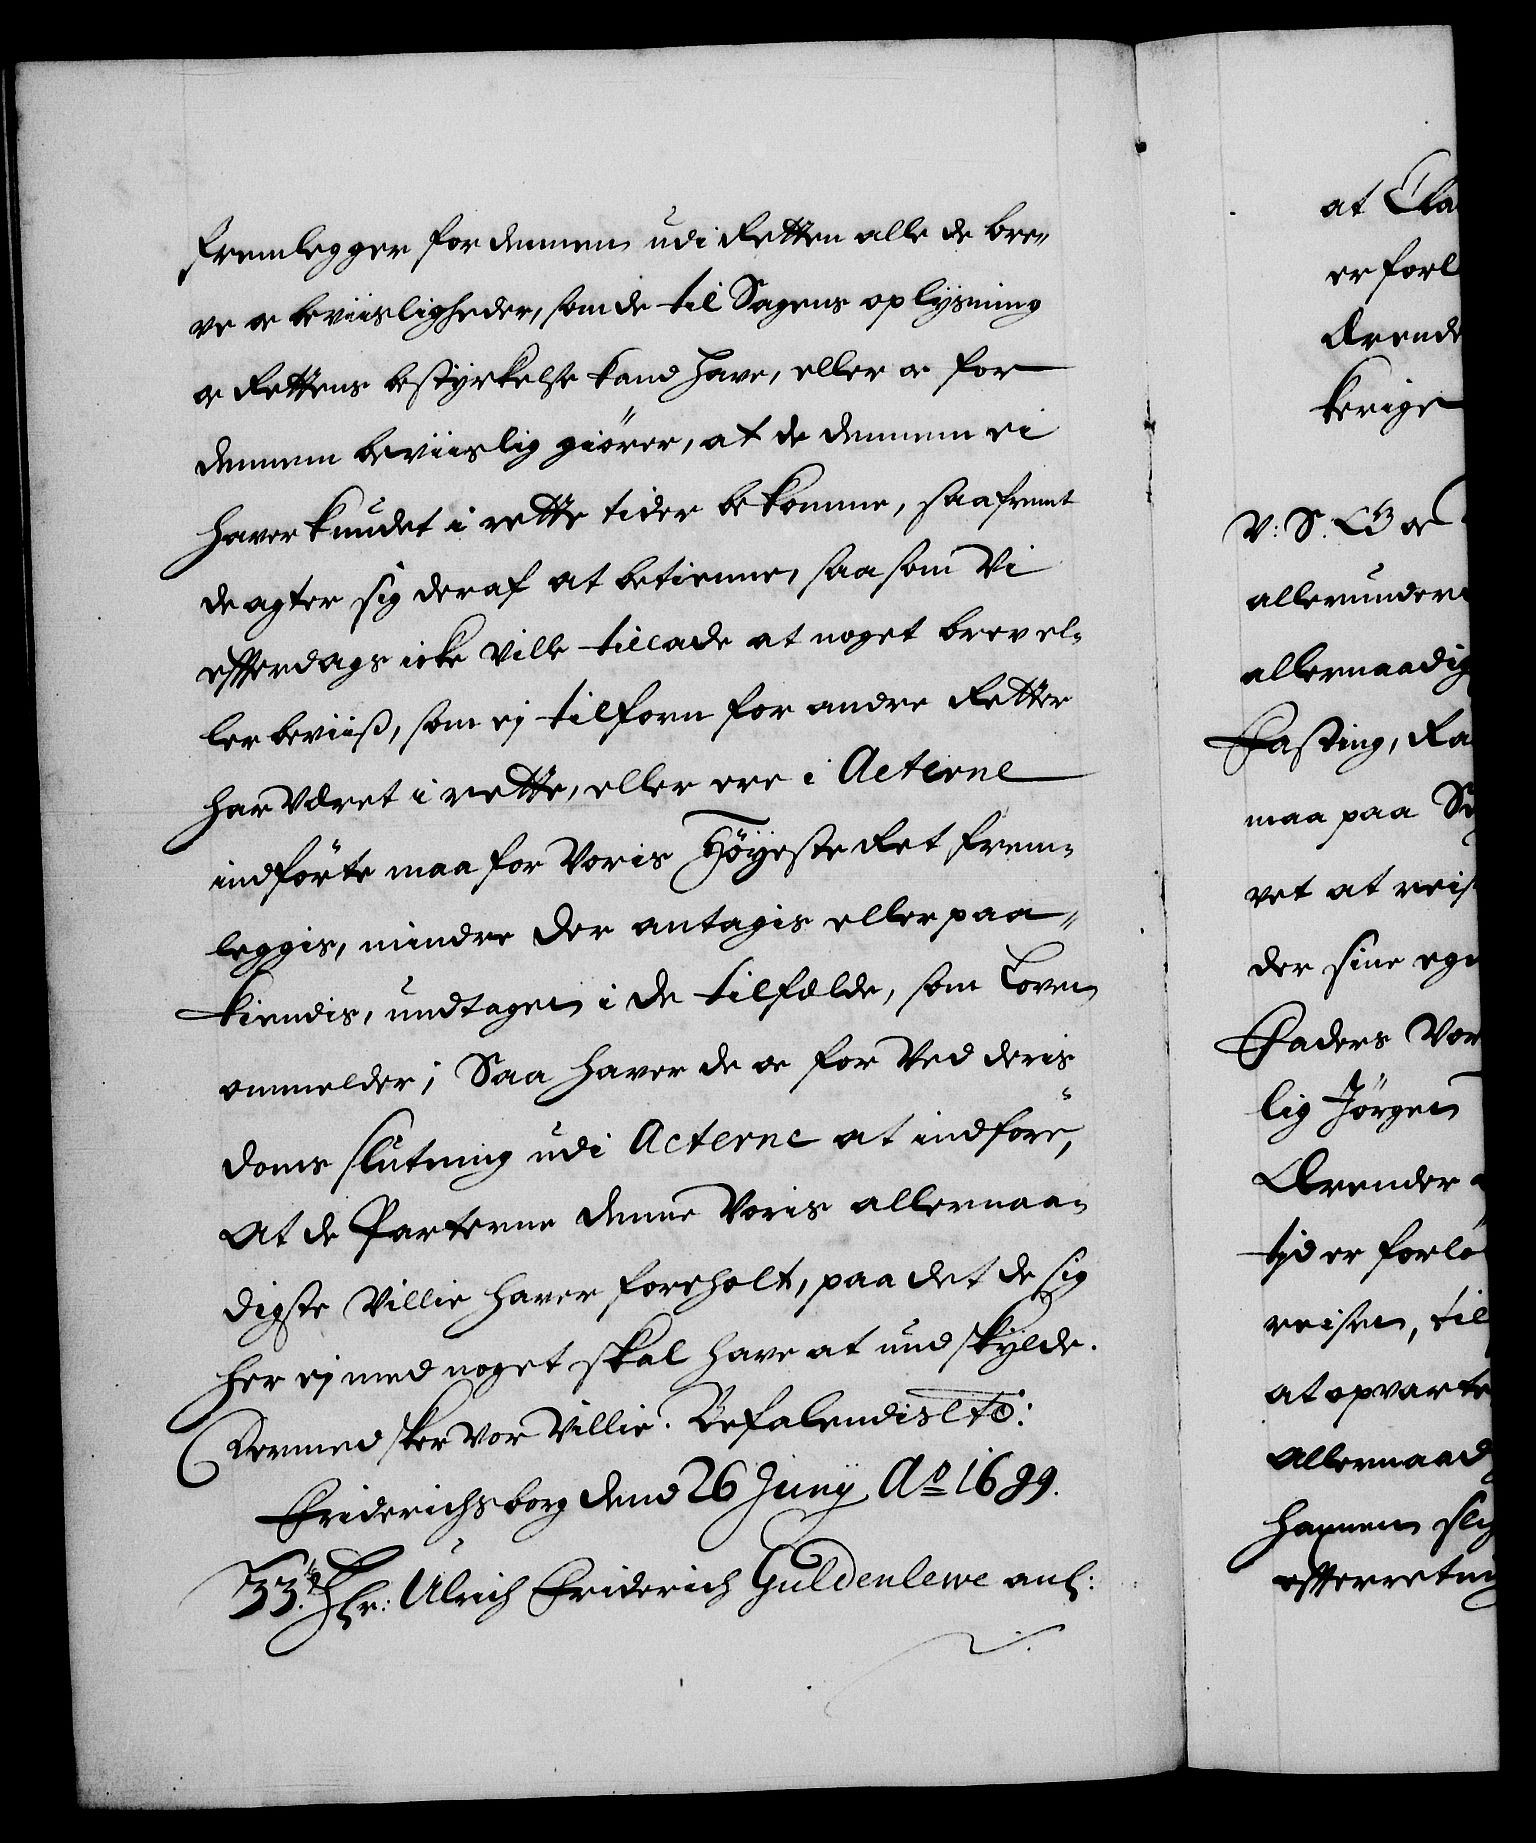 fremlegger for dennem udi Retten alle de bre„
ve og beviisligheder, som de til Sagens oplysning
og Rettens bestyrkelse kand have, eller og for
dennem beviislig giører, at de dennem ei
haver kundet i rette tider bekomme, saafremt
de agter sig deraf at betienne, saasom Vi
efterdags icke Ville tillade at noget brev el„
ler beviiß, som ej tilforn for andre Retter
har Været i rette, eller ere i Acterne
indførte maa for Voris Høÿeste Ret frem„
leggis, mindre der antagis eller paa„
kiendis, undtagen i de tilfælde, som Loven
ommelder; Saa haver de og for Ved deris
doms slutning udi Acterne at indføre,
At de Parterne denne Voris allernaa„
digste Villie haver foreholt, paa det de sig
her ej med noget skal have at undskylde.
Dermed skeer Vor Villie. Befalendis etc:
Friderichsborg dend 26 Junÿ Ao 1689.
33. Hr: Ulrich Friderich Guldenlewe anl:
at Cla
er forl
Ærende
kerige
V: S. CB og
allerunder
allernaadig
Fasting, Ra
maa paa Se
vet at reis
der sine ege
Faders Vor
lig Jørgen
Ærender
tid er forlø
reisen, til
at opvarte
Allernaad
hannem slig
efterretni